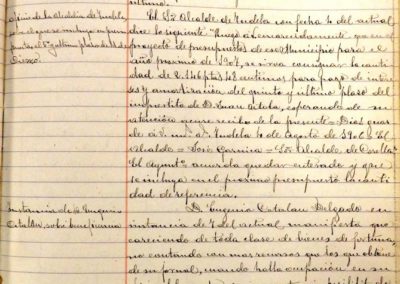 mismo.
Oficio de la Alcaldia de Tudela,
sobre que se incluya en presu-
puesto el 5º y último plazo de
El Sr. Alcalde de Tudela con fecha 1º del actual,
dice lo siguiente "Ruego á V. encarecidamente que en el
proyecto de presupuestos de ese Municipio para el
año proximo de 1907, se sirva consignar la canti-
dad de 2.146 ptas 48 centimos para pago de intere-
ses y amortizacion del quinto y último plazo del
emprestito de D. Juan Ostola, esperando de su
atención acuse recibo de la presente = Dios guar-
de á V. m. a. Tudela 1º de Agosto de 1906 = El
Alcalde = José Garnica = Sr. Alcalde de Corella"
El Ayuntº acuerda quedar enterado y que
se incluya en el proximo presupuesto la canti-
dad de referencia.
Instancia de D. Eugenio
Catalan, sobre
D. Eugenio Catalan Delgado en
instancia de 7 del actual, manifiesta que
careciendo de toda clase de bienes de fortuna,
no contando con mas recursos que los que obtiene
de su jornal, cuando halla ocupación en su